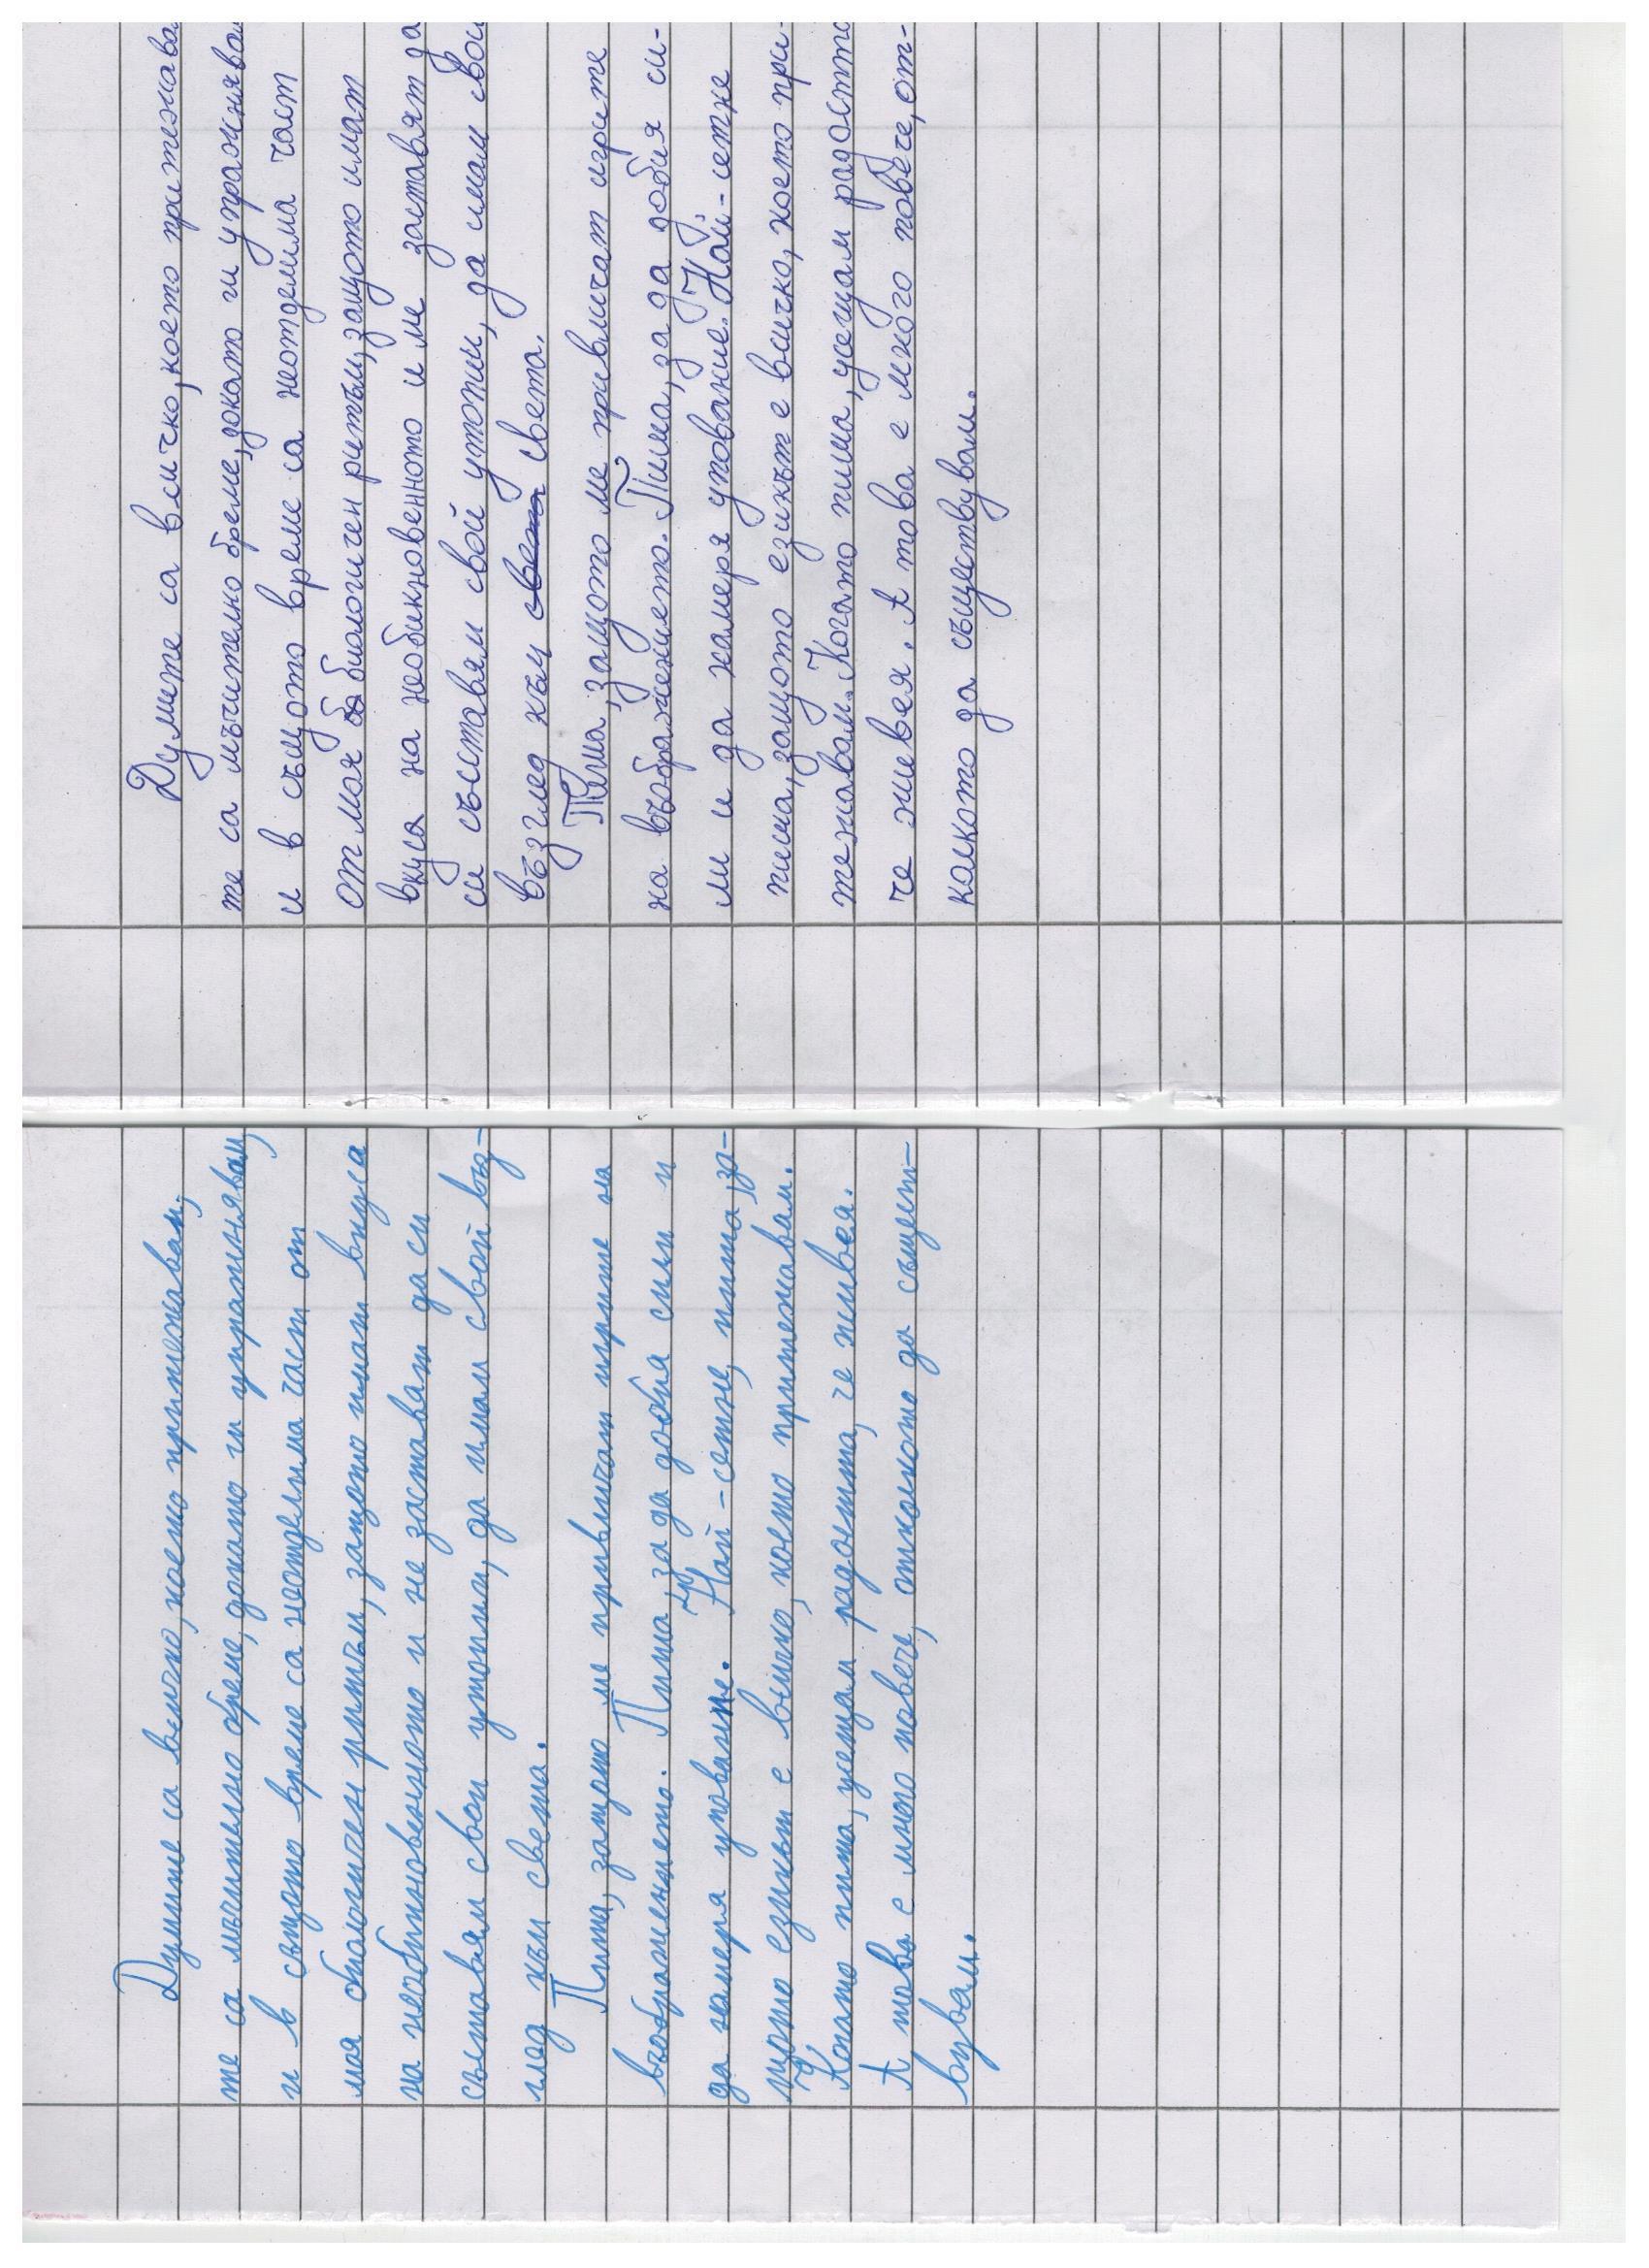 Думите са всичко, което притежавам,
те са мъчително бреме, докато ги упражнявам,
и в същото време са неотделима част от
моя биологичен ритъм, защото имат вкуса
на необикновеното и не заставят да си
съставям свои утопии, да имам свой въз-
глед към света.
Пиша, защото ме привличат игрите на
въображението. Пиша, за да добия сили и
да намеря упование. Най-сетне, пиша, за-
щото езикът е всичко, което притежавам.
Когато пиша, усещам радостта, че живея.
А това е много повече, отколкото да същест-
вувам.
Думите са всичко, което притежава
те са мъчително бреме, докато ги упражнява
и в същото време са неотделима част
от моя биологичен ритъм, защото имат
вкуса на необикновенното и ме заставят да
си съставям свой утопии, да имам свои
възглед към света света.
Пиша, защото ме привличат игрите
на въображението. Пиша, за да добия си-
ли и да намеря упование. Най-сетне
пиша, защото езикът е всичко, което при-
тежавам. Когато пиша, усещам радостта
че живея. А това е много повече, от-
колкото да съществувам.